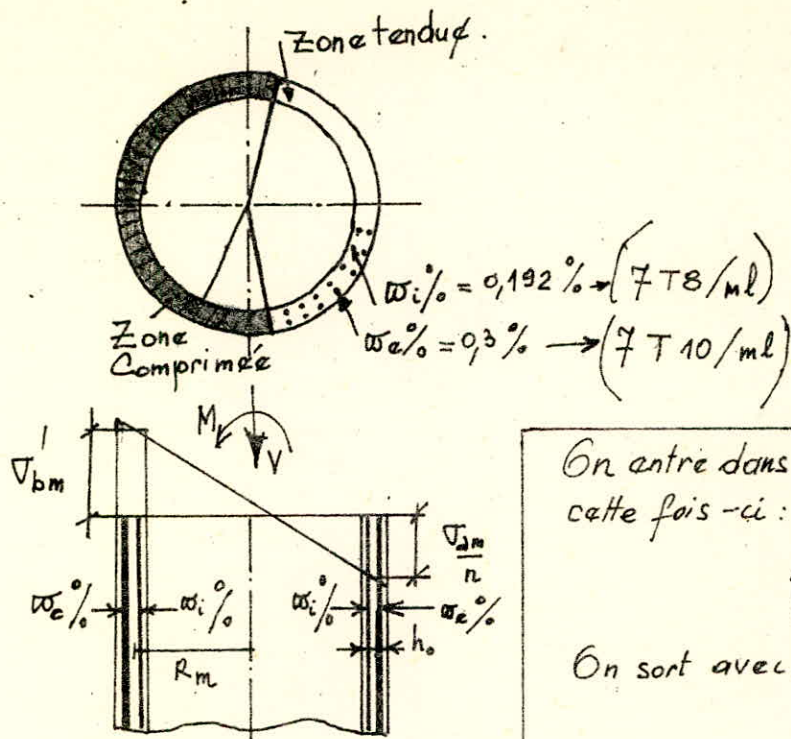 Zone tendue.
ϖi% = 0,192% → (7 T8/ml)
ϖe% = 0,3% → (7 T 10/ml)
Zone
Comprimée
M
V
σ'bm
σam/n
ϖe% ϖi% ϖi% ϖe%
Rm
h₀
On entre dans
cette fois-ci :
On sort avec